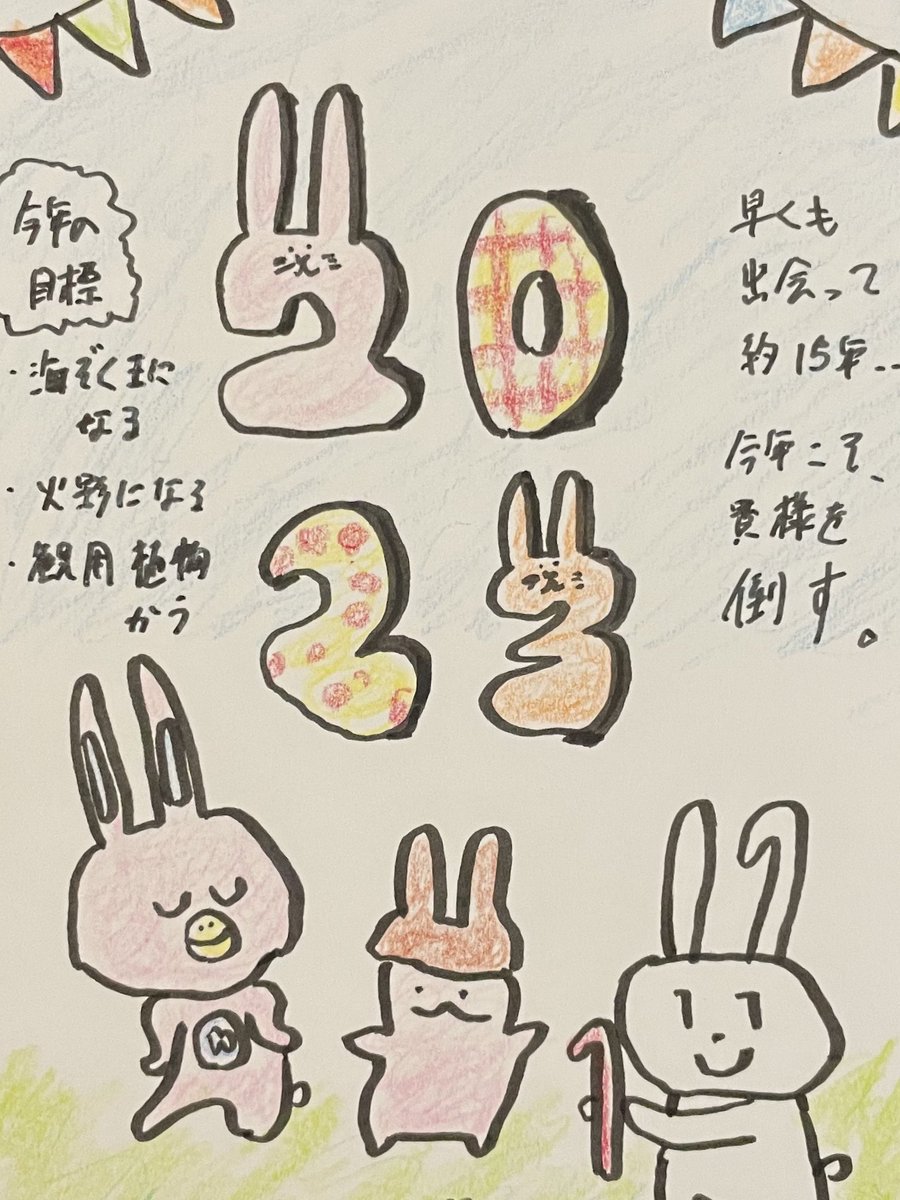 今年の
目標
・海ぞく王に
なる
・火影になる
・観用植物
かう
20
23
早くも
出会って
約15年..
今年こそ、
貴様を
倒す。
W